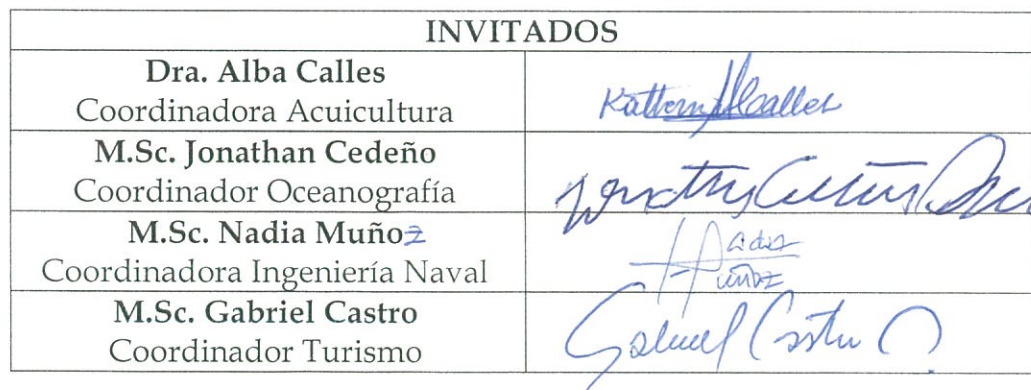 INVITADOS
Dra. Alba Calles
Coordinadora Acuicultura
M.Sc. Jonathan Cedeño
Coordinador Oceanografía
M.Sc. Nadia Muñoz
Coordinadora Ingeniería Naval
M.Sc. Gabriel Castro
Coordinador Turismo
Gabriel Castro